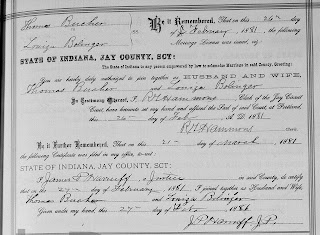 Thomas Bucher
to
Louiza Bolinger
Be it Remembered, That on this 26th day
of February 1881, the following
Marriage License was issued, viz:
STATE OF INDIANA, JAY COUNTY, SCT:
The State of Indiana to any person empowered by law to solemnize Marriage in said County, Greeting:
You are hereby duly authorized to join together as HUSBAND AND WIFE,
Thomas Bucher and Louiza Bolinger
In Testimony Whereof, I, Clerk of the Jay Circuit
Court, have hereunto set my hand and affixed the Seal of said Court, at Portland,
this 26 day of Feb A. D. 1881
Clerk
Be it Further Remembered, That on this 21 day of March 1881
the following Certificate was filed in my office, to-wit:
STATE OF INDIANA, JAY COUNTY, SCT:
I James a Justice in said County, do certify
that on the 27 day of February 1881 I joined together as Husband and Wife,
Thomas Bucher and Louiza Bolinger
Given under my hand, this 27 day of Feb 1881
J.P.